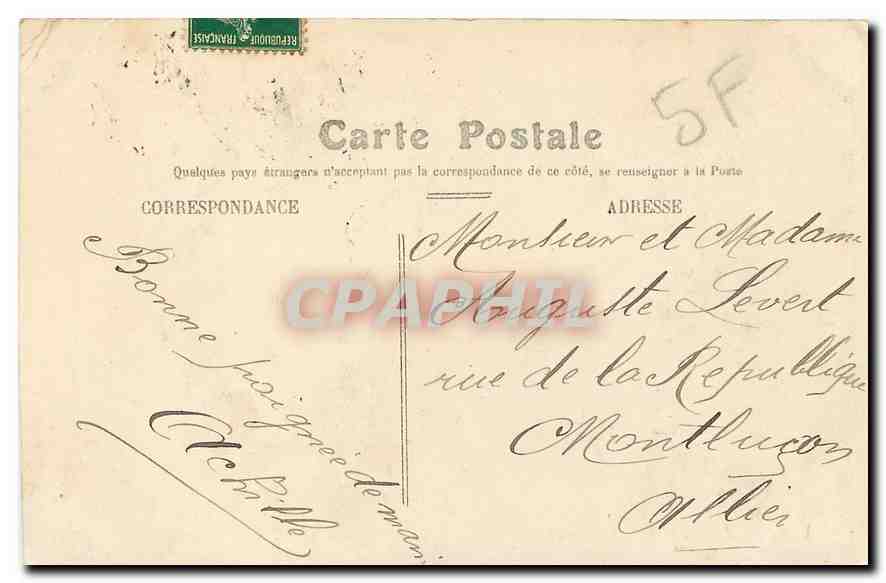 REPUBLIQUE FRANÇAISE
5F
Carte Postale
Quelques pays étrangers n'acceptant pas la correspondance de ce côté, se renseigner a la Poste
CORRESPONDANCE
ADRESSE
Bonne poignée de main
Achille
Monsieur et Madame
Auguste Levert
rue de la République
Montluçon
Allier
CPAPHIL